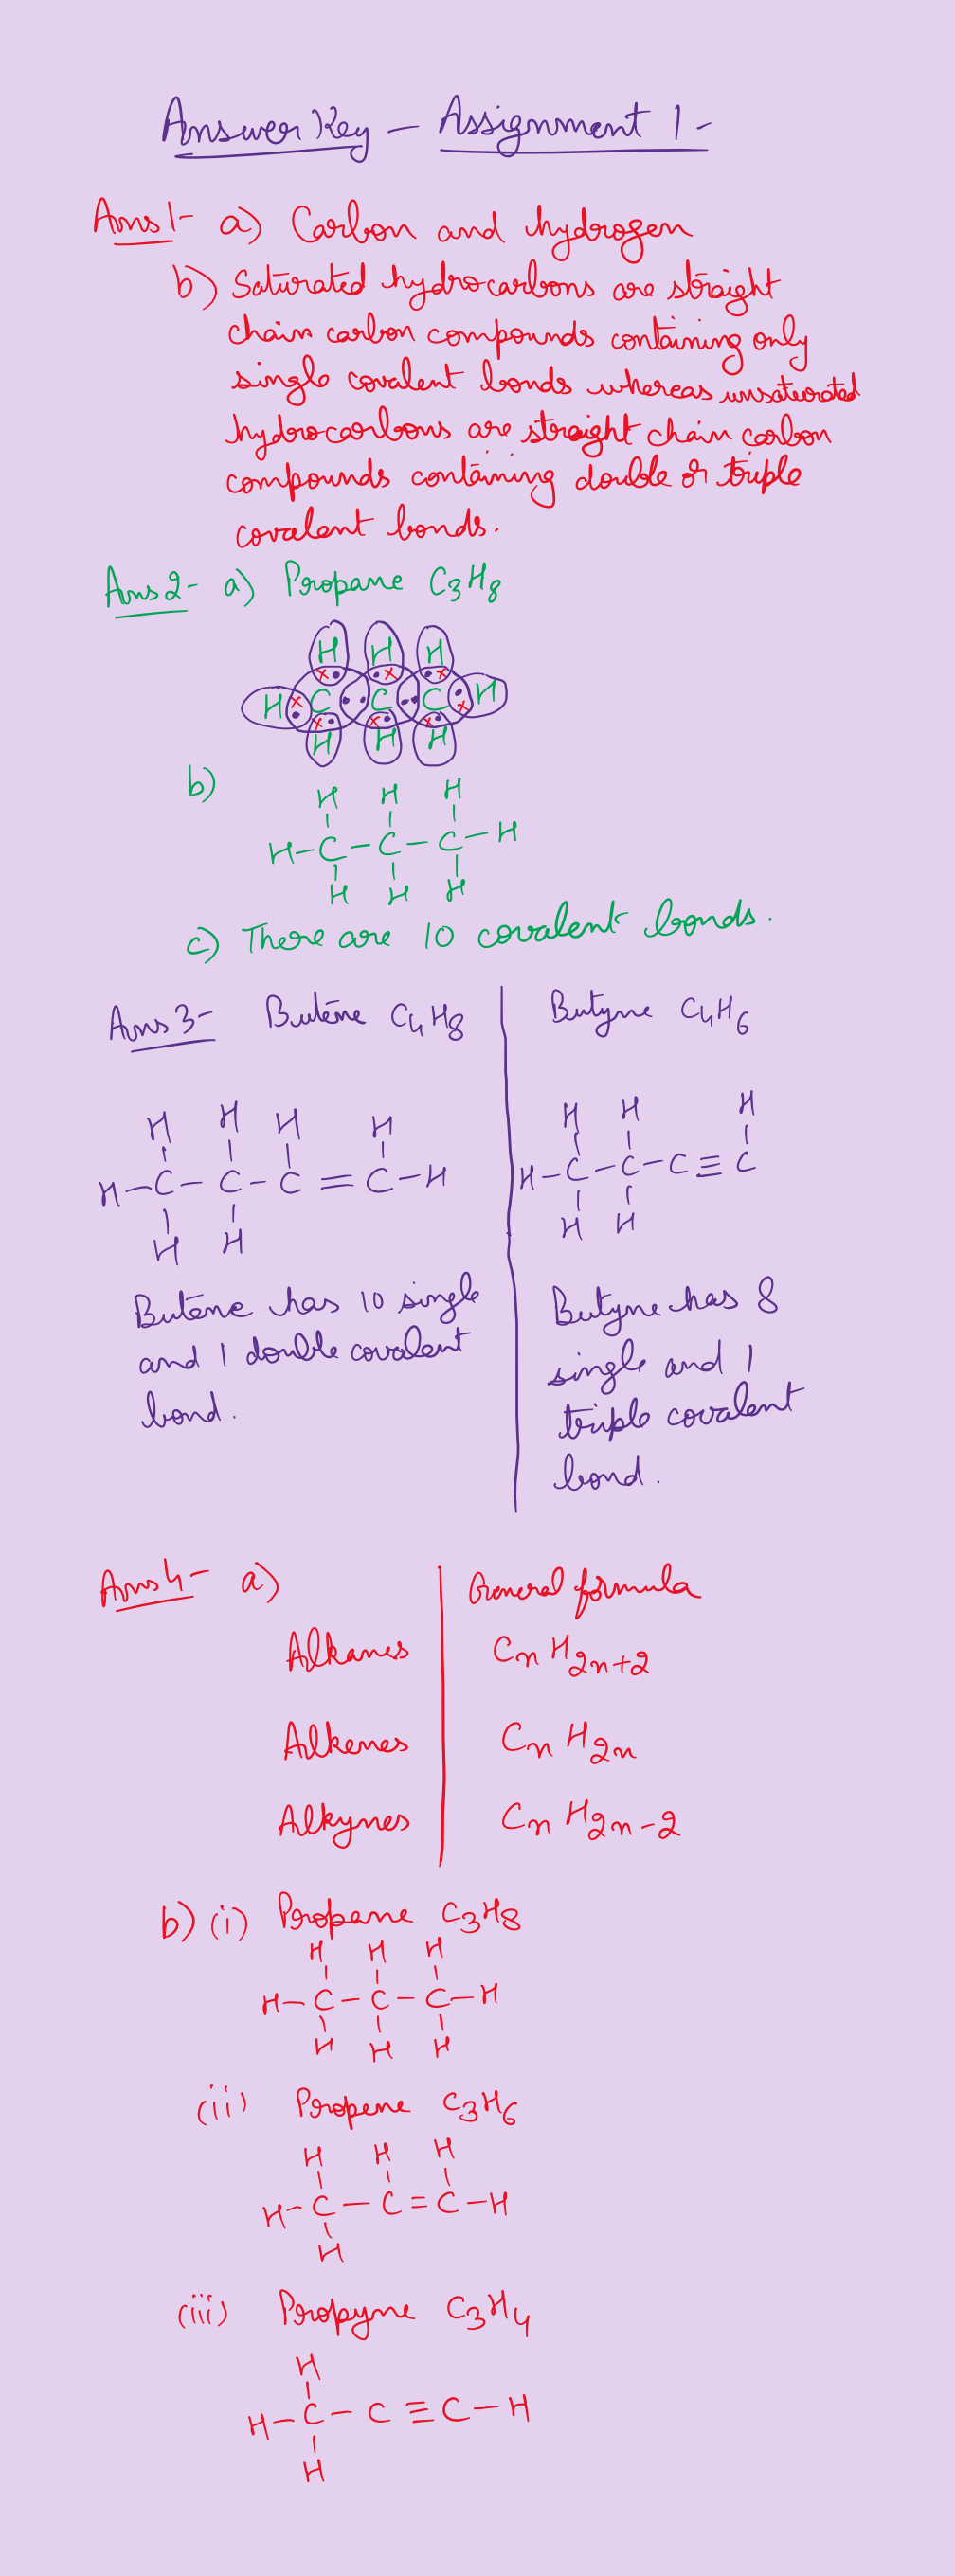 Answer Key - Assignment 1 -
Ans 1- a) Carbon and hydrogen
b) Saturated hydrocarbons are straight
chain carbon compounds containing only
single covalent bonds whereas unsaturated
hydrocarbons are straight chain carbon
compounds containing double or triple
covalent bonds.
Ans 2- a) Propane C₃H₈
H H H
H C C C H
H H H
b)
H H H
H-C-C-C-H
H H H
c) There are 10 covalent bonds.
Ans 3- Butene C₄H₈
H H H H
H-C-C-C=C-H
H H
Butene has 10 single
and 1 double covalent
bond.
Butyne C₄H₆
H H H
H-C-C-C≡C
H H
Butyne has 8
single and 1
triple covalent
bond.
Ans 4- a) General formula
Alkanes CₙH₂ₙ₊₂
Alkenes CₙH₂ₙ
Alkynes CₙH₂ₙ₋₂
b) (i) Propane C₃H₈
H H H
H-C-C-C-H
H H H
(ii) Propene C₃H₆
H H H
H-C-C=C-H
H
(iii) Propyne C₃H₄
H
H-C-C≡C-H
H